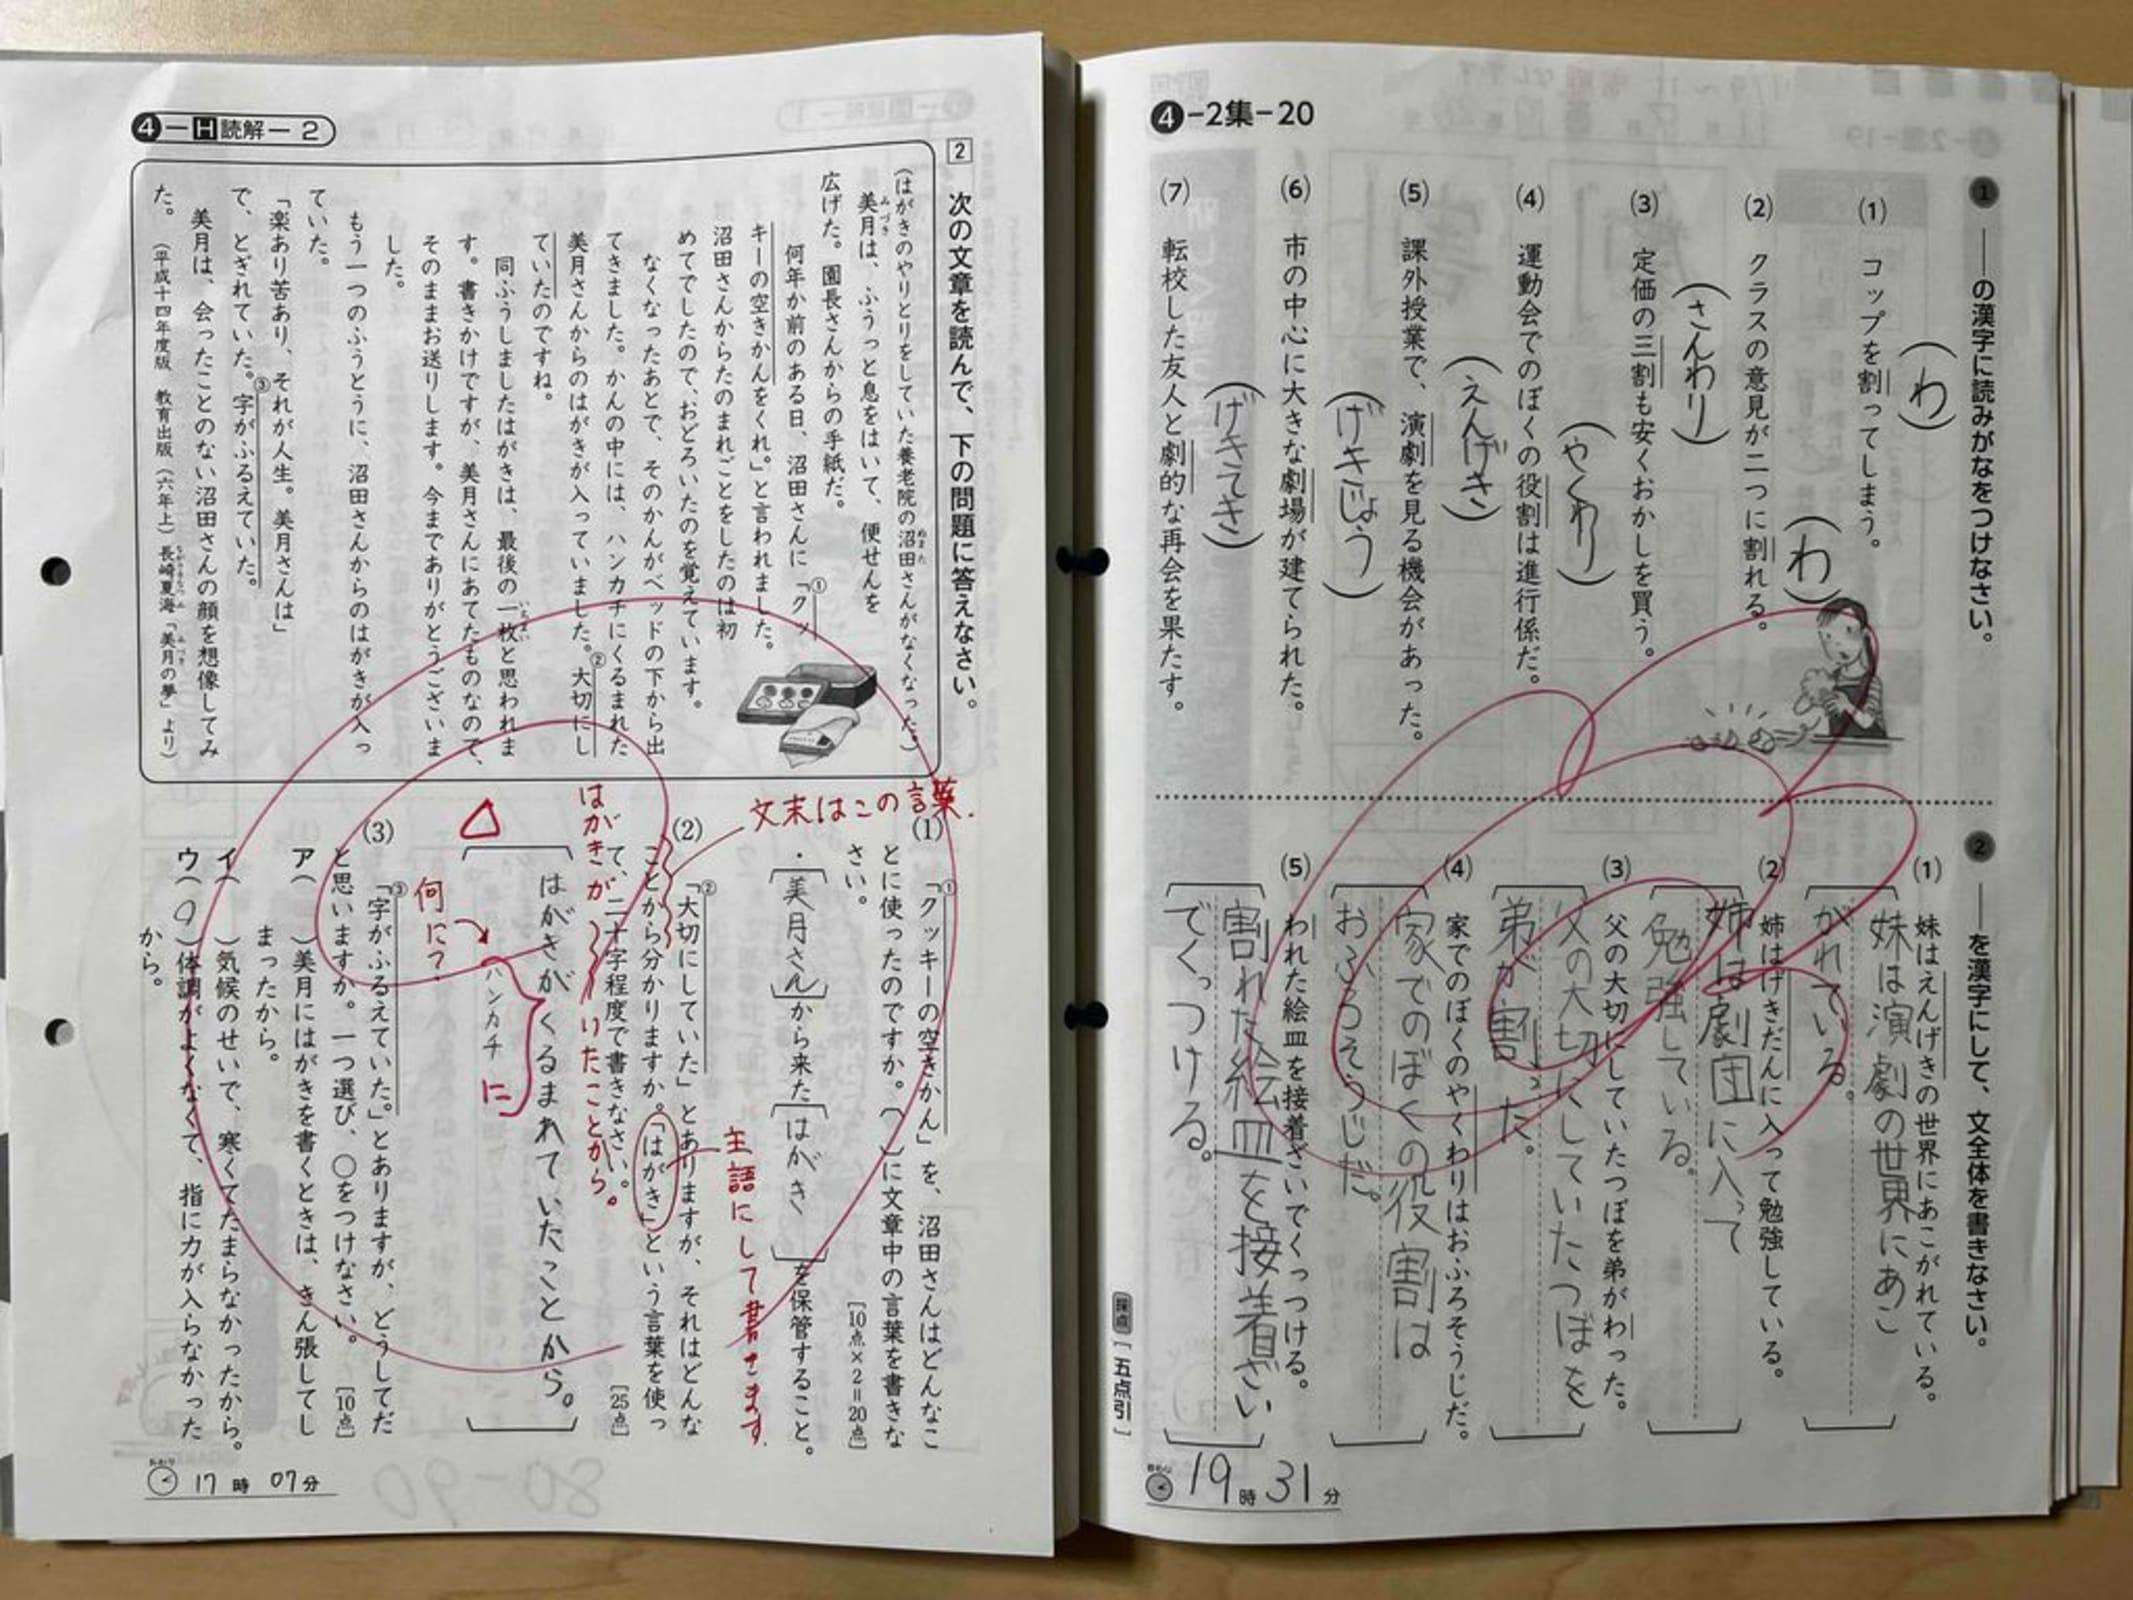 4-2集-20
1 ──の漢字に読みがなをつけなさい。
(1) コップを割ってしまう。
(わ)
(2) クラスの意見が二つに割れる。
(わ)
(3) 定価の三割も安くおかしを買う。
(さんわり)
(4) 運動会でのぼくの役割は進行係だ。
(やくわり)
(5) 課外授業で、演劇を見る機会があった。
(えんげき)
(6) 市の中心に大きな劇場が建てられた。
(げきじょう)
(7) 転校した友人と劇的な再会を果たす。
(げきてき)
2 ──を漢字にして、文全体を書きなさい。
(1) 妹はえんげきの世界にあこがれている。
妹は演劇の世界にあこ
がれている。
(2) 姉はげきだんに入って勉強している。
姉は劇団に入って
勉強している。
(3) 父の大切にしていたつぼを弟がわった。
父の大切にしていたつぼを
弟が割った。
(4) 家でのぼくのやくわりはおふろそうじだ。
家でのぼくの役割は
おふろそうじだ。
(5) われた絵皿を接着ざいでくっつける。
割れた絵皿を接着ざい
でくっつける。
採点[五点引]
19時31分
4-H読解-2
2 次の文章を読んで、下の問題に答えなさい。
(はがきのやりとりをしていた養老院の沼田さんがなくなった。)
美月は、ふうっと息をはいて、便せんを
広げた。園長さんからの手紙だ。
何年か前のある日、沼田さんに「①クッ
キーの空きかんをくれ。」と言われました。
沼田さんからたのまれごとをしたのは初
めてでしたので、おどろいたのを覚えています。
なくなったあとで、そのかんがベッドの下から出
てきました。かんの中には、ハンカチにくるまれた
美月さんからのはがきが入っていました。②大切にし
ていたのですね。
同ふうしましたはがきは、最後の一枚と思われま
す。書きかけですが、美月さんにあてたものなので、
そのままお送りします。今までありがとうございま
した。
もう一つのふうとうに、沼田さんからのはがきが入っ
ていた。
「楽あり苦あり、それが人生。美月さんは」
で、とぎれていた。③字がふるえていた。
美月は、会ったことのない沼田さんの顔を想像してみ
た。
(平成十四年度版 教育出版(六年上)長崎夏海「美月の夢」より)
(1) 「①クッキーの空きかん」を、沼田さんはどんなこ
とに使ったのですか。( )に文章中の言葉を書きな
さい。 [10点×2=20点]
・[美月さん]から来た[はがき]を保管すること。
文末はこの言葉。
(2) 「②大切にしていた」とありますが、それはどんな
ことから分かりますか。「はがき」という言葉を使っ
て、二十字程度で書きなさい。 [25点]
主語にして書きます。
はがきが〜いたことから。
はがきがくるまれていたことから。
ハンカチに
何に?
△
(3) 「③字がふるえていた。」とありますが、どうしてだ
と思いますか。一つ選び、○をつけなさい。 [10点]
ア( )美月にはがきを書くときは、きん張してし
まったから。
イ( )気候のせいで、寒くてたまらなかったから。
ウ(○)体調がよくなくて、指に力が入らなかった
から。
17時07分